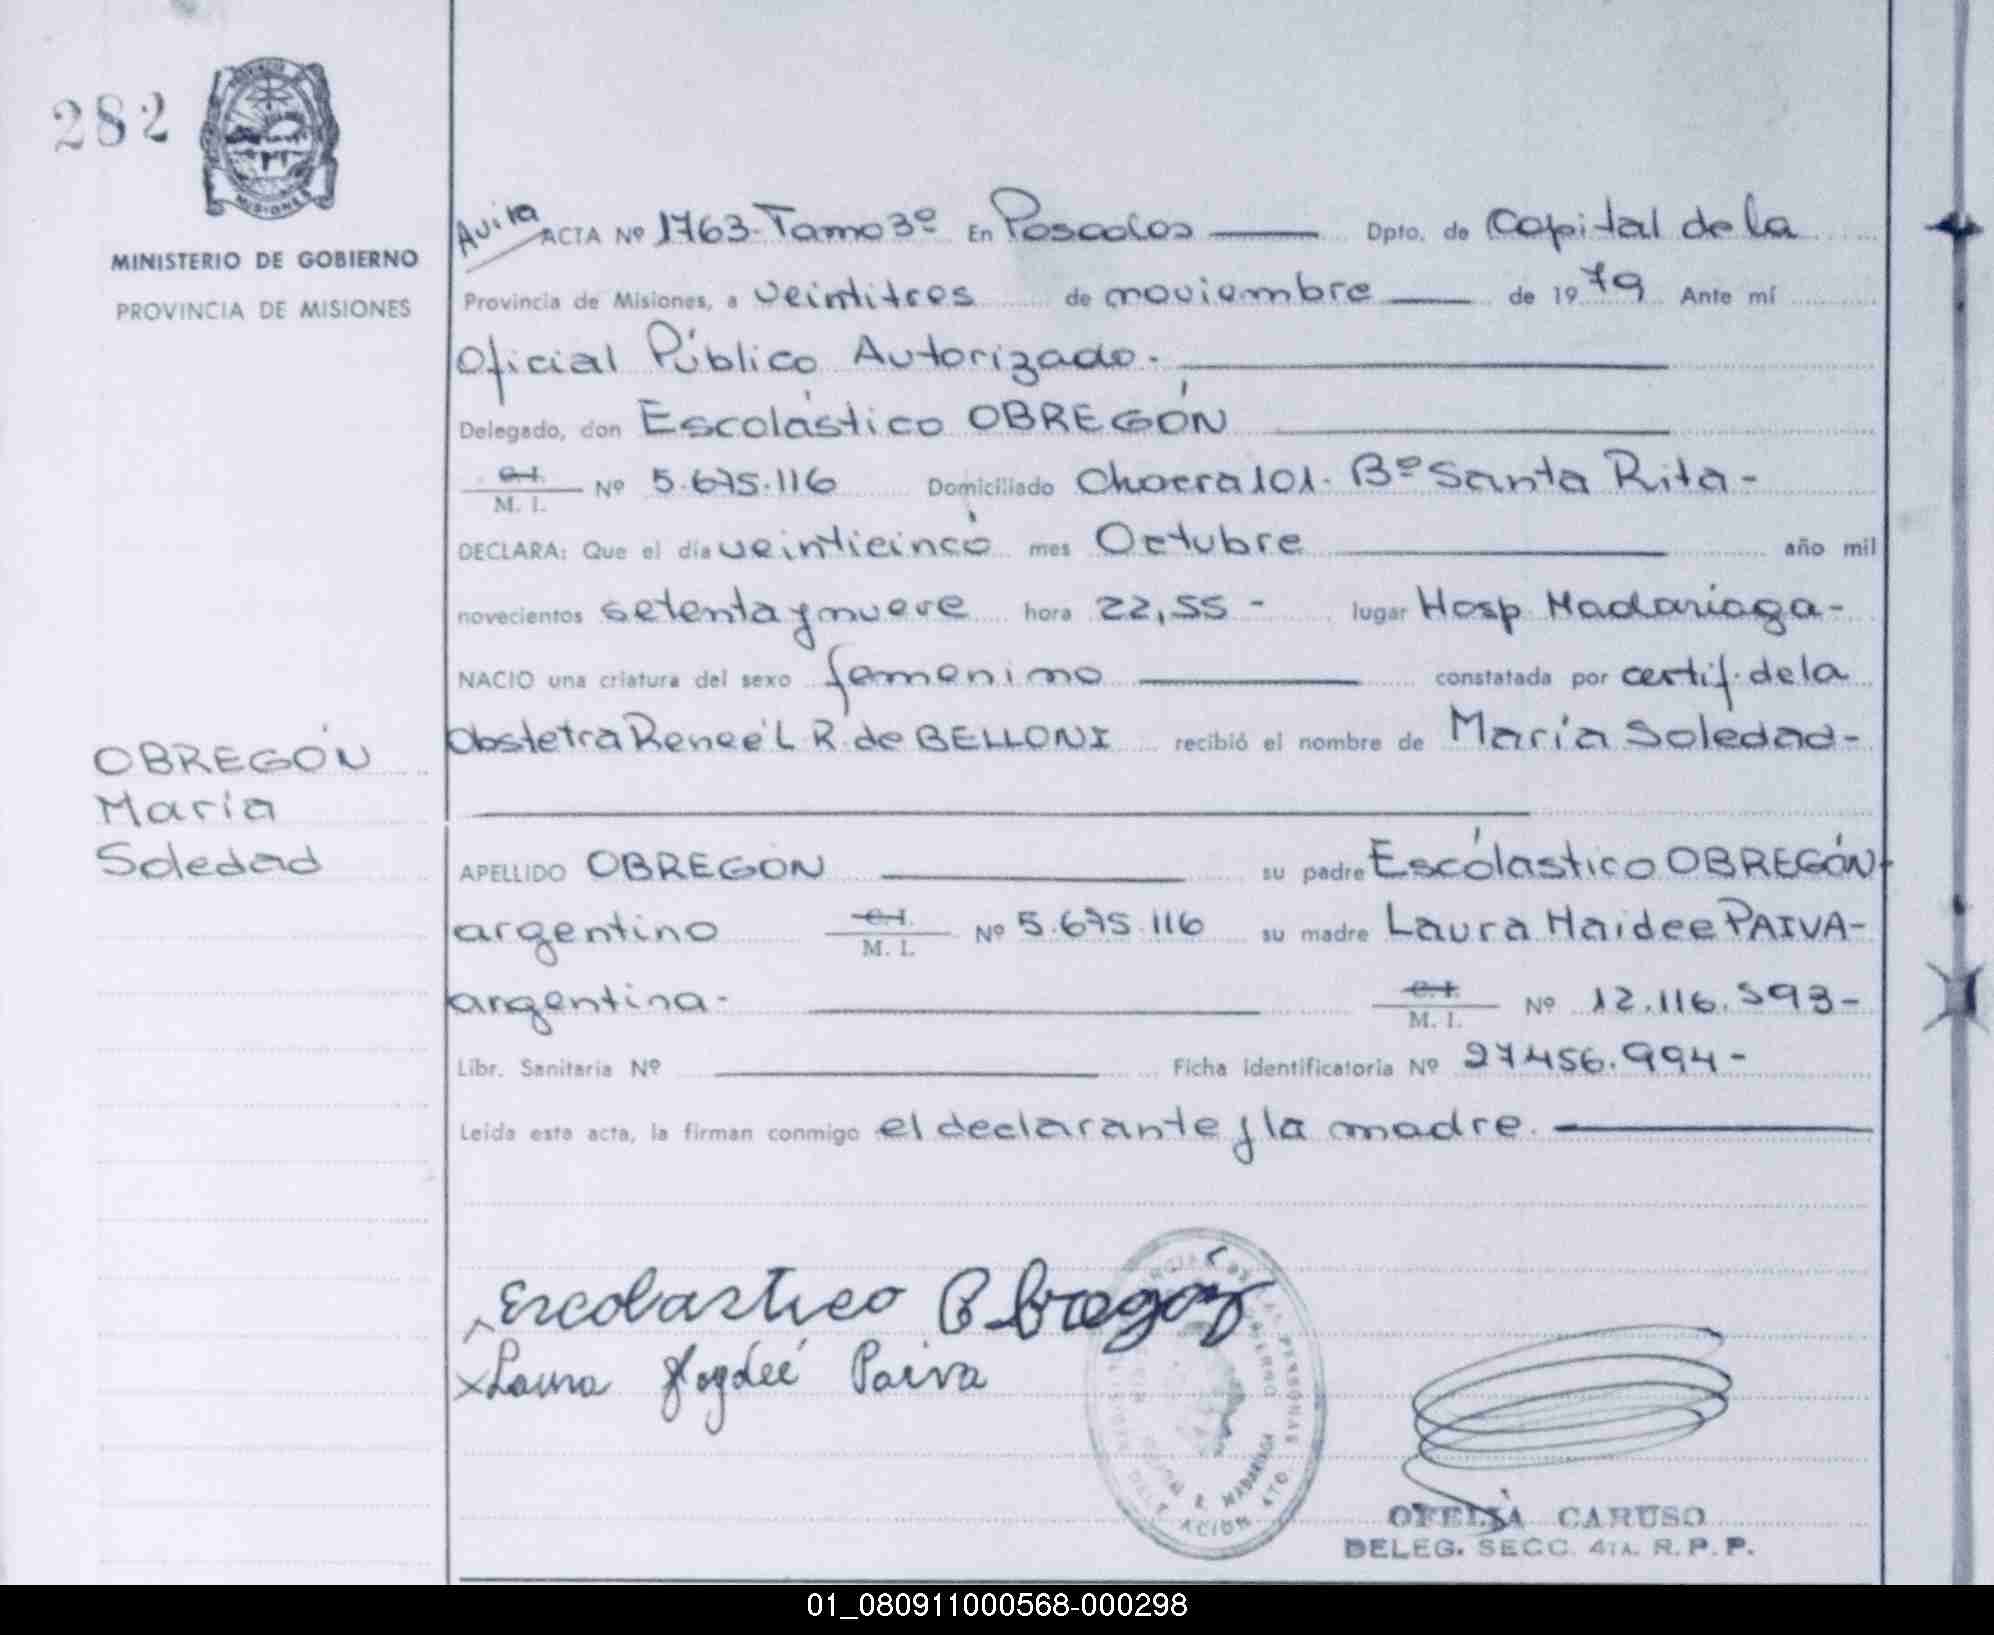 282
MISIONES
MINISTERIO DE GOBIERNO
PROVINCIA DE MISIONES
ACTA Nº 1763-Tomo 3º En Posadas Dpto. de Capital de la
Provincia de Misiones, a veintitres de noviembre de 1979 Ante mí
Oficial Público Autorizado.-
Delegado, don Escolástico OBREGÓN
C.I.
M. I. Nº 5.675.116 Domiciliado Chacra 101. Bº Santa Rita-
DECLARA: Que el día veinticinco mes Octubre año mil
novecientos setenta y nueve hora 22,55 - lugar Hosp Madariaga-
NACIO una criatura del sexo femenino constatada por certif. de la
Obstetra Reneé L R. de BELLONI recibió el nombre de María Soledad-
OBREGÓN
María
Soledad
APELLIDO OBREGÓN su padre Escólastico OBREGÓN-
argentino C.I.
M. I. Nº 5.675.116 su madre Laura Haidee PAIVA-
argentina- C.I.
M. I. Nº 12.116.593-
Libr. Sanitaria Nº Ficha identificatoria Nº 27.456.994-
Leída esta acta, la firman conmigo el declarante y la madre.
Escolastico Obregón
x Laura Haydeé Paiva
OFELIA CARUSO
DELEG. SECC. 4TA. R. P. P.
01_080911000568-000298